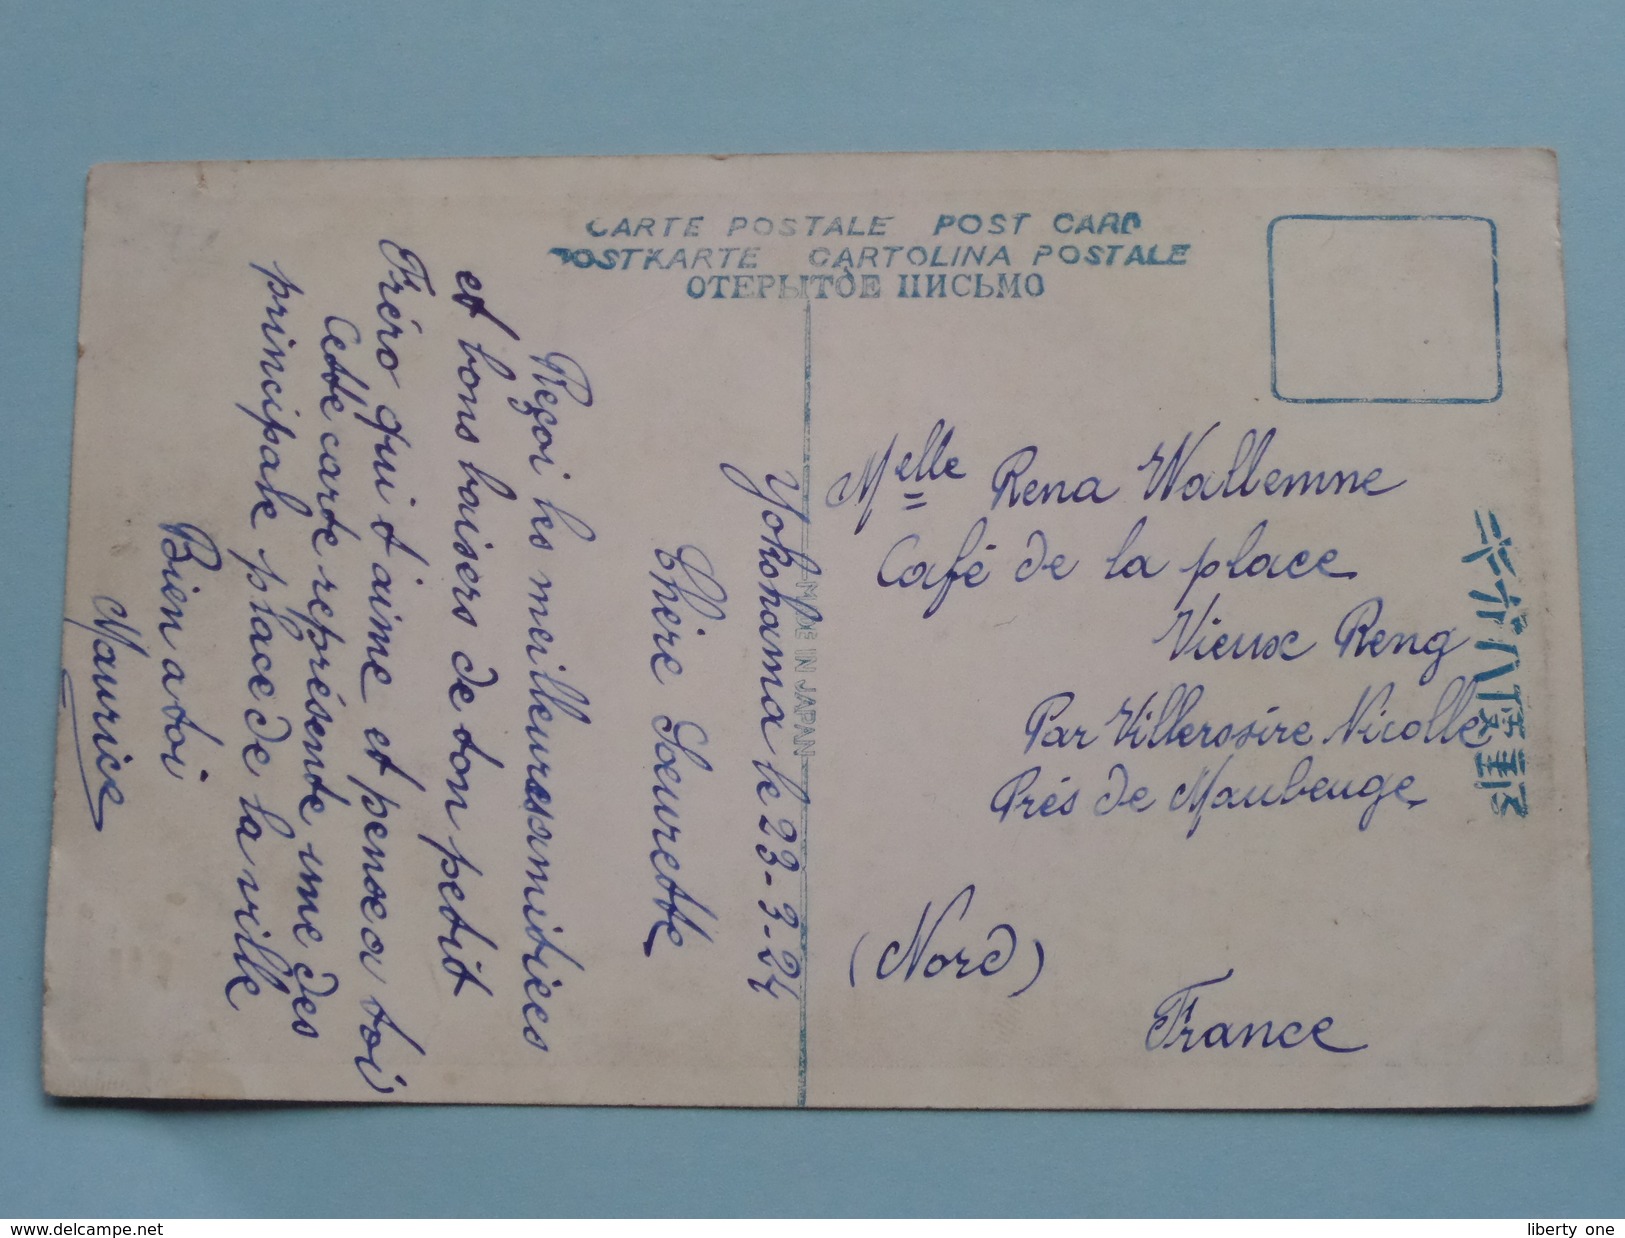 CARTE POSTALE POST CARD
POSTKARTE CARTOLINA POSTALE
ОТЕРЫТОЕ ПИСЬМО
MADE IN JAPAN
Yokohama le 23-3-24
Chère Soeurette
Reçoi les meilleures amitiées
et bons baisers de ton petit
Fréro qui t'aime et pense a toi
Cette carte représente une des
principale place de la ville
Bien a toi
Maurice
Melle Rena Wallemne
Café de la place
Vieux Reng
Par Villers sire Nicolle
Près de Maubeuge
(Nord)
France
http://www.delcampe.net
liberty one